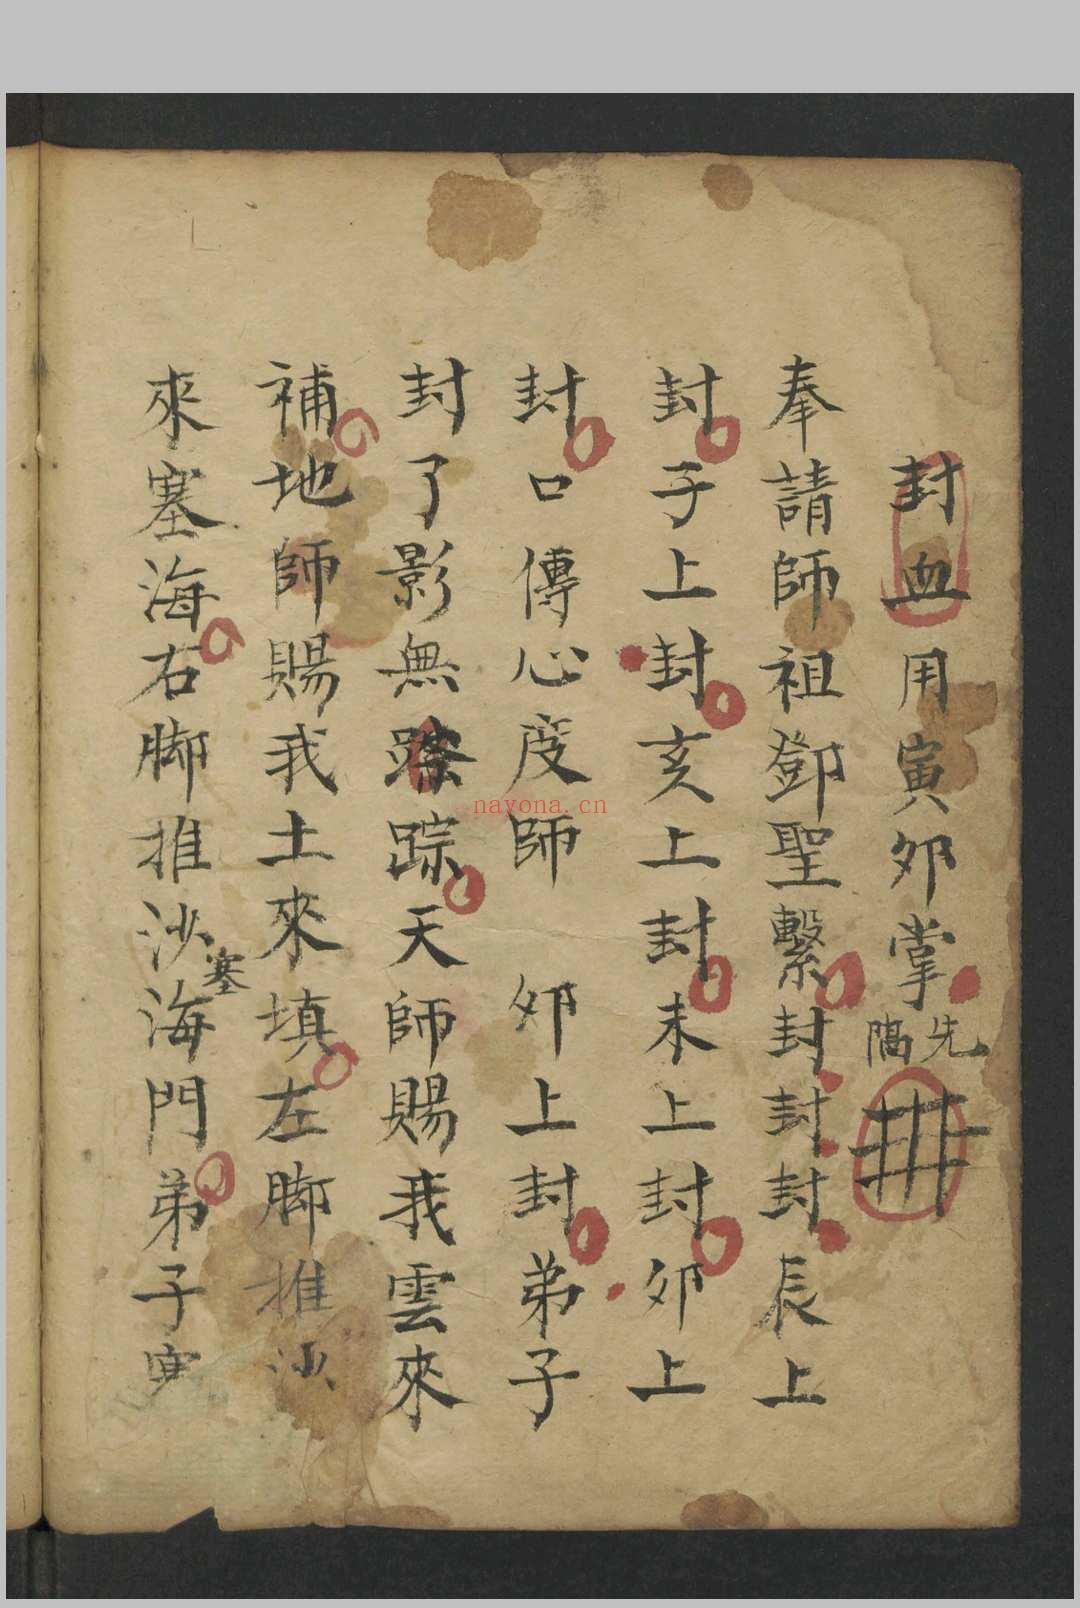 封血用寅夘掌
先
奉請師祖鄧聖繫封封封辰上
封子上封亥上封未上封夘上
封口傳心度師 夘上封弟子
封了影無踪天師賜我雲來
補地師賜我土來填左脚推沙
來塞海右脚推沙塞海門弟子寅
nayona.cn